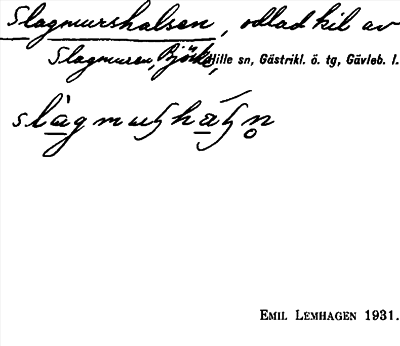 Slagmurshalsen, odlad kil av
Slagmuren, Björke, Hille sn, Gästrikl. ö. tg, Gävleb. l.
slàgmuꜧháꜧn̥
EMIL LEMHAGEN 1931.